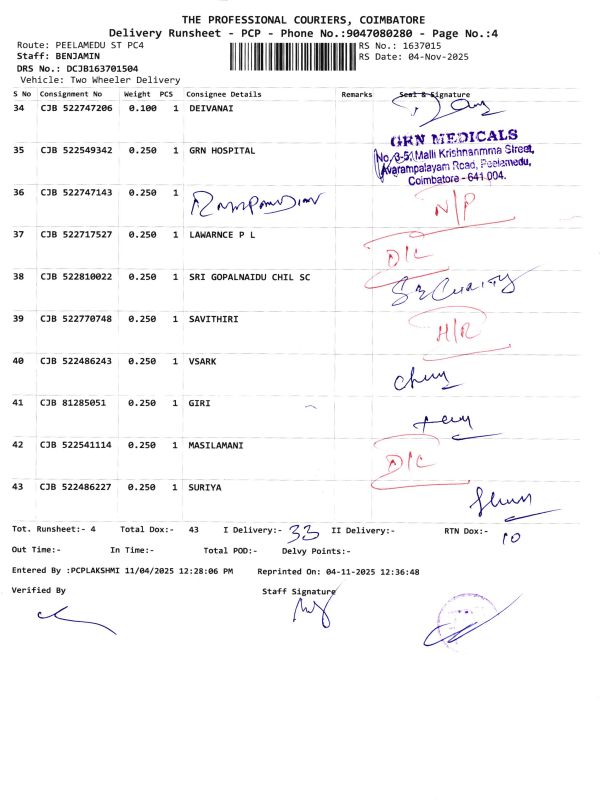 THE PROFESSIONAL COURIERS, COIMBATORE
Delivery Runsheet - PCP - Phone No.:9047080280 - Page No.:4
Route: PEELAMEDU ST PC4 RS No.: 1637015
Staff: BENJAMIN RS Date: 04-Nov-2025
DRS No.: DCJB163701504
Vehicle: Two Wheeler Delivery
S No Consignment No Weight PCS Consignee Details Remarks Seal & Signature
34 CJB 522747206 0.100 1 DEIVANAI
35 CJB 522549342 0.250 1 GRN HOSPITAL
GRN MEDICALS
No. 3-51 Malli Krishnanmma Street,
Avarampalayam Road, Peelamedu,
Coimbatore - 641 004.
36 CJB 522747143 0.250 1 Rampandian N/P
37 CJB 522717527 0.250 1 LAWARNCE P L D/C
38 CJB 522810022 0.250 1 SRI GOPALNAIDU CHIL SC Security
39 CJB 522770748 0.250 1 SAVITHIRI H/R
40 CJB 522486243 0.250 1 VSARK
41 CJB 81285051 0.250 1 GIRI
42 CJB 522541114 0.250 1 MASILAMANI D/C
43 CJB 522486227 0.250 1 SURIYA
Tot. Runsheet:- 4 Total Dox:- 43 I Delivery:- 33 II Delivery:- RTN Dox:- 10
Out Time:- In Time:- Total POD:- Delvy Points:-
Entered By :PCPLAKSHMI 11/04/2025 12:28:06 PM Reprinted On: 04-11-2025 12:36:48
Verified By Staff Signature